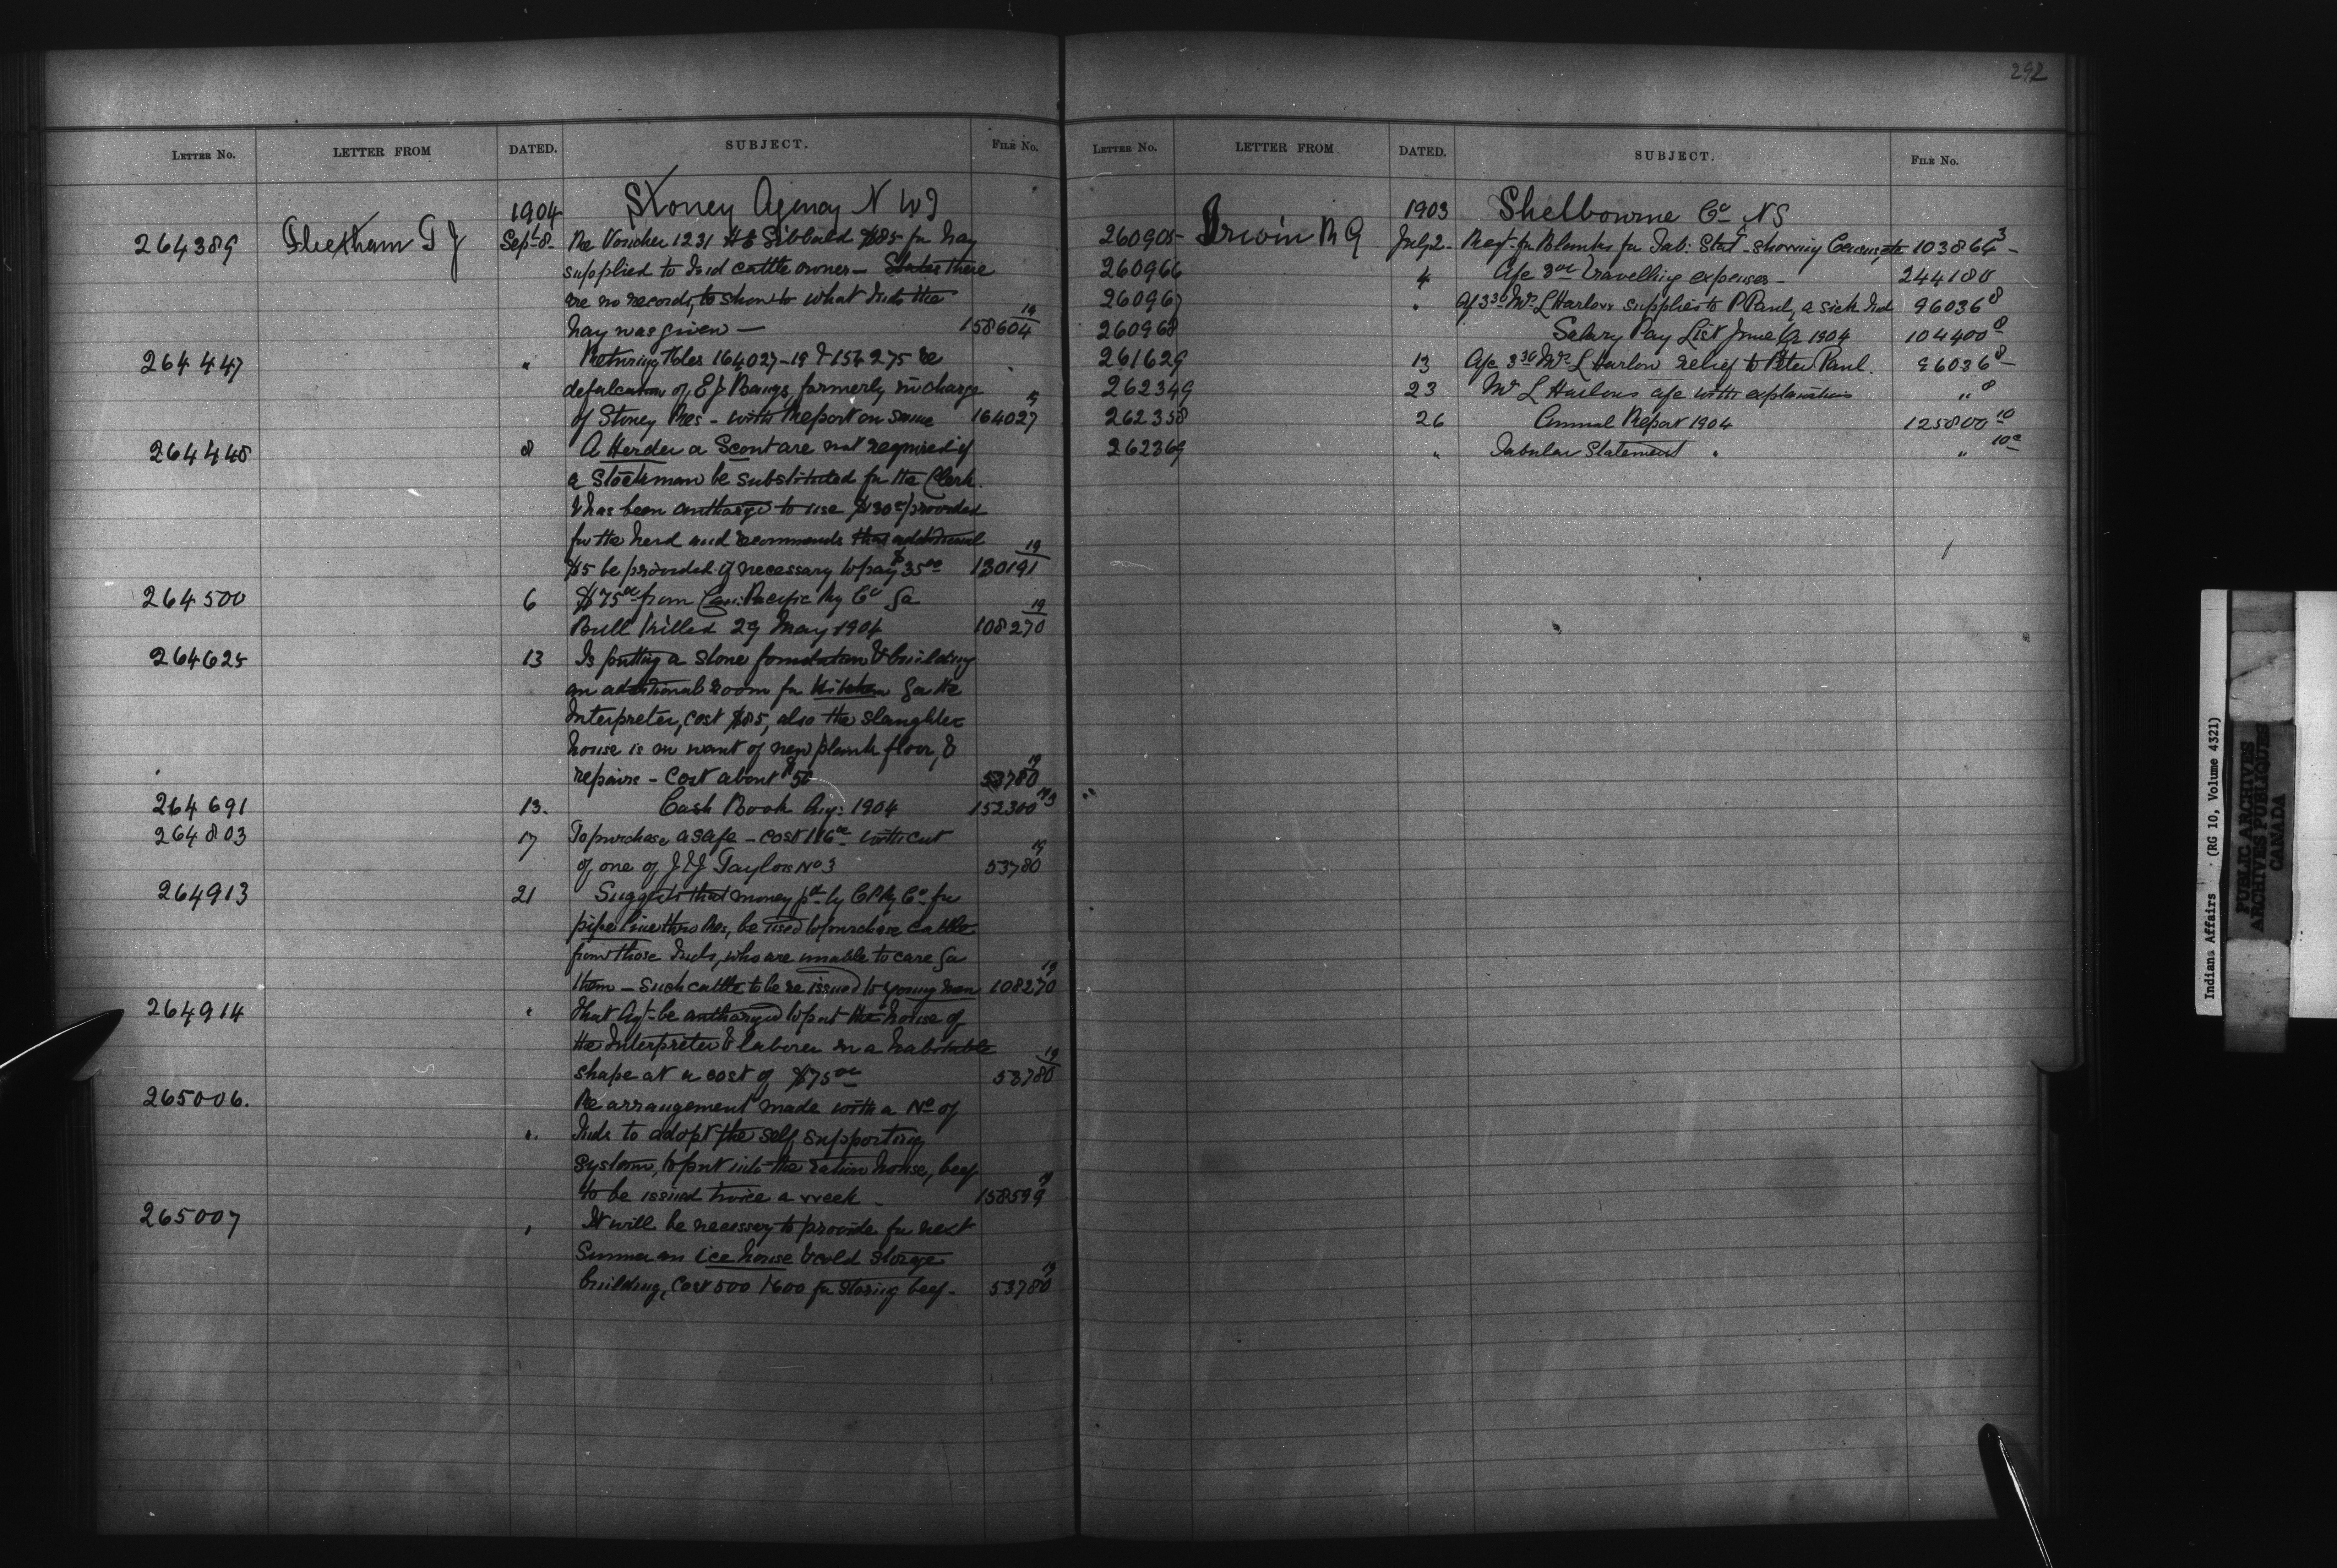 292
LETTER NO. LETTER FROM DATED. SUBJECT. FILE NO.
1904 Stoney Agency N W T
264389 Fleetham T J Sept 8 Re Voucher 1231 Sibbald $85 for hay
supplied to Ind cattle owner - States there
are no records, to show to what Inds the
hay was given - 158604 19
264447 " Returning files 164027-19 & 154275 re
defalcation of E J Bangs, formerly in charge
of Stoney Res - with Report on same 164027
264448 8 A Herder a Scout are not required if
a Stockman be substituted for the Clerk.
& has been authorized to use $30 provided
for the herd and recommends that additional
$5 be provided if necessary to pay $35 00 130191 19
264500 6 $75 00 from Can: Pacific Ry Co for
Bull killed 29 May 1904 108270 19
264625 13 Is putting a stone foundation & building
an additional room for kitchen for the
Interpreter, cost $85, also the slaughter
house is in want of new plank floor, &
repairs - Cost about $50 53780 19
264691 13. Cash Book Aug: 1904 152300
264803 17 To purchase a safe - cost 116 00 with cut
of one of J & J Taylors No 3 53780 19
264913 21 Suggests that money pd by CPRy Co for
pipe line thro Res, be used to purchase cattle
from those Inds, who are unable to care for
them - such cattle to be re issued to young men 108270 19
264914 " That Agt be authorized to put the house of
the Interpreter & laborer in a habitable
shape at a cost of $75 00 53780 19
265006. Re arrangement made with a No of
". Inds to adopt the self supporting
system, to put into the ration house, beef
to be issued twice a week - 158599 19
265007 " It will be necessary to provide for next
Summer an ice house & cold storage
building, Cost 500 / 600 for storing beef - 53780 19
LETTER NO. LETTER FROM DATED. SUBJECT. FILE NO.
1903 Shelbourne Co NS
260905 Irwin R G July 2 Reqt for Blanks for Tab: Stat - showing Census, etc 103864 3
260966 4 a/c travelling expenses - 244180
260967 " a/c Mrs L Harlow supplies to P Paul, a sick Ind 96036 8
260968 Salary Pay List June Qr 1904 104400 8
261629 13 a/c Mrs L Harlow relief to Peter Paul. 96036 8
262349 23 Mr L Harlows a/c with explanations " 8
262358 26 Annual Report 1904 125800 10
262369 " Tabular Statement " " 10
Indian Affairs . (RG 10, Volume 4321)
PUBLIC ARCHIVES
ARCHIVES PUBLIQUES
CANADA